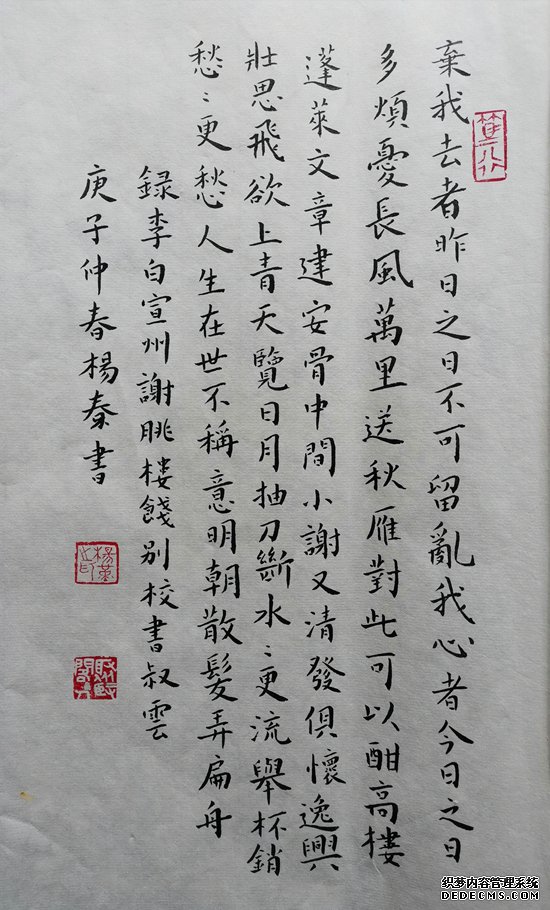 棄我去者昨日之日不可留亂我心者今日之日
多煩憂長風萬里送秋雁對此可以酣高樓
蓬萊文章建安骨中間小謝又清發俱懷逸興
壯思飛欲上青天覽日月抽刀斷水〻更流舉杯銷
愁〻更愁人生在世不稱意明朝散髮弄扁舟
録李白宣州謝朓樓餞別校書叔雲
庚子仲春楊秦書
织梦内容管理系统
DEDECMS.COM